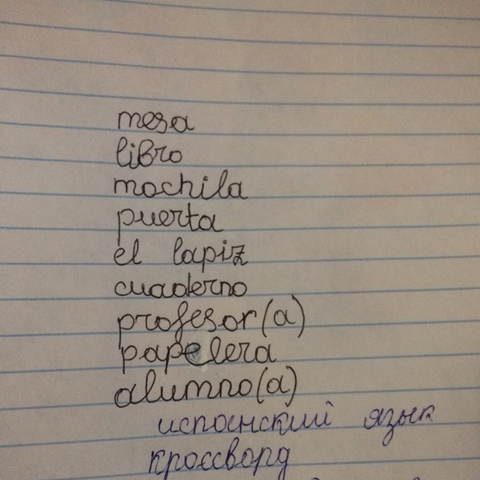 mesa
libro
mochila
puerta
el lapiz
cuaderno
profesor(a)
papelera
alumno(a)
испанский язык
кроссворд